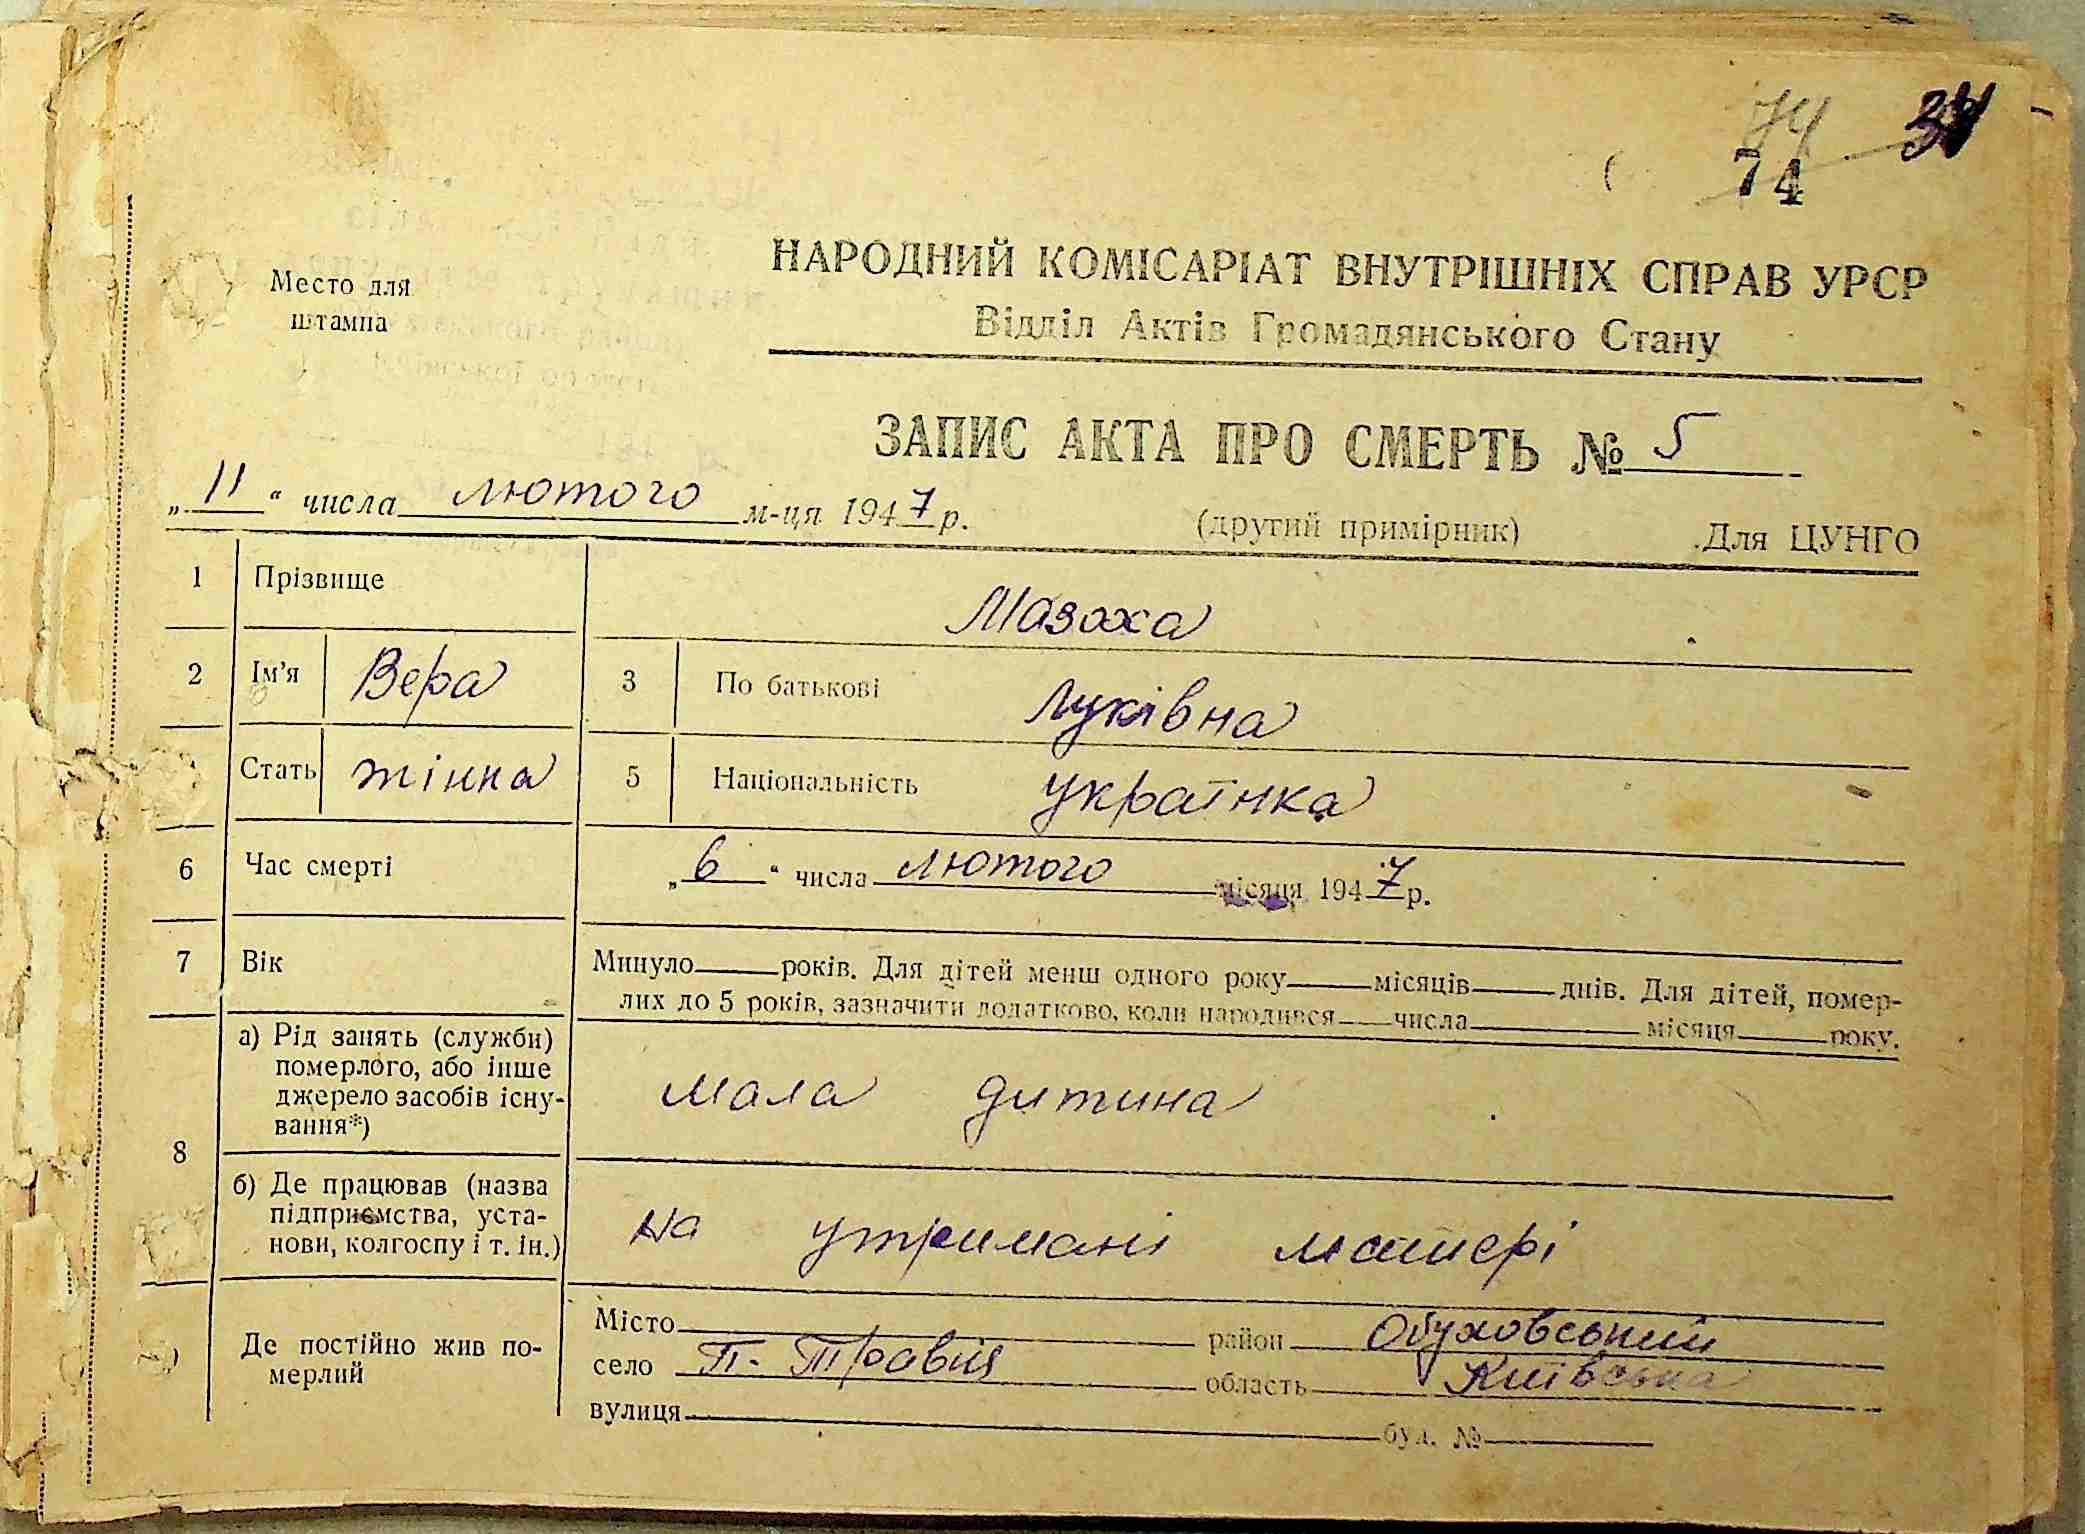 74
74
НАРОДНИЙ КОМІСАРІАТ ВНУТРІШНІХ СПРАВ УРСР
Место для
штампа
Відділ Актів Громадянського Стану
ЗАПИС АКТА ПРО СМЕРТЬ № 5
„11“ числа лютого м-ця 1947 р.
(другий примірник) Для ЦУНГО
1 Прізвище Мазоха
2 Ім'я Вера 3 По батькові Луківна
Стать жінка 5 Національність українка
6 Час смерті „6“ числа лютого місяця 1947 р.
7 Вік Минуло років. Для дітей менш одного року місяців днів. Для дітей, помер-
лих до 5 років, зазначити додатково, коли народився числа місяця року.
8 а) Рід занять (служби)
померлого, або інше
джерело засобів існу-
вання*)
мала дитина
б) Де працював (назва
підприємства, уста-
нови, колгоспу і т. ін.)
на утримані матері
Де постійно жив по-
мерлий
Місто район Обуховський
село П. Травня область Київська
вулиця буд. №